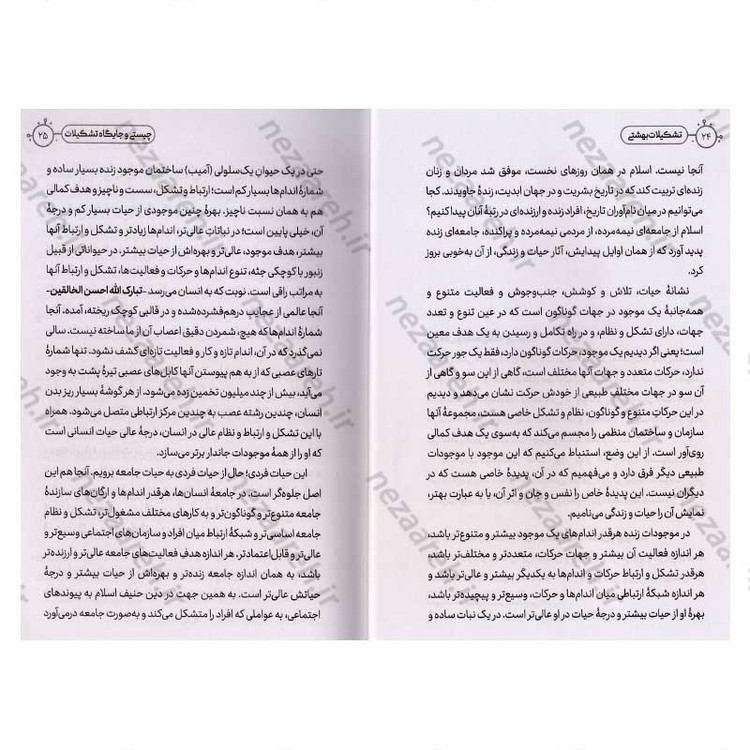 ۲۴ تشکیلات بهشتی
آنجا نیست. اسلام در همان روزهای نخست، موفق شد مردان و زنان
زنده‌ای تربیت کند که در تاریخ بشریت و در جهان ابدیت، زندهٔ جاویدند. کجا
می‌توانیم در میان نام‌آوران تاریخ، افراد زنده و ارزنده‌ای در رتبهٔ آنان پیدا کنیم؟
اسلام از جامعه‌ای نیمه‌مرده، از مردمی نیمه‌مرده و پراکنده، جامعه‌ای زنده
پدید آورد که از همان اوایل پیدایش، آثار حیات و زندگی، از آن به‌خوبی بروز
کرد.
نشانهٔ حیات، تلاش و کوشش، جنب‌وجوش و فعالیت متنوع و
همه‌جانبهٔ یک موجود در جهات گوناگون است که در عین تنوع و تعدد
جهات، دارای تشکل و نظام، و در راه تکامل و رسیدن به یک هدف معین
است؛ یعنی اگر دیدیم یک موجود، حرکات گوناگون دارد، فقط یک جور حرکت
ندارد، حرکات متعدد و جهات آنها مختلف است، گاهی از این سو و گاهی از
آن سو در جهات مختلف طبیعی از خودش حرکت نشان می‌دهد و دیدیم
در این حرکاتِ متنوع و گوناگون، نظام و تشکل خاصی هست، مجموعهٔ آنها
سازمان و ساختمان منظمی را مجسم می‌کند که به‌سوی یک هدف کمالی
روی‌آور است. از این وضع، استنباط می‌کنیم که این موجود با موجودات
طبیعی دیگر فرق دارد و می‌فهمیم که در آن، پدیدهٔ خاصی هست که در
دیگران نیست. این پدیدهٔ خاص را نفس و جان و اثر آن، یا به عبارت بهتر،
نمایش آن را حیات و زندگی می‌نامیم.
در موجودات زنده هرقدر اندام‌های یک موجود بیشتر و متنوع‌تر باشد،
هر اندازه فعالیت آن بیشتر و جهات حرکات، متعددتر و مختلف‌تر باشد،
هرقدر تشکل و ارتباط حرکات و اندام‌ها به یکدیگر بیشتر و عالی‌تر باشد و
هر اندازه شبکهٔ ارتباطی میان اندام‌ها و حرکات، وسیع‌تر و پیچیده‌تر باشد،
بهرهٔ او از حیات بیشتر و درجهٔ حیات در او عالی‌تر است. در یک نبات ساده و
چیستی و جایگاه تشکیلات ۲۵
حتی در یک حیوان یک‌سلولی (آمیب) ساختمان موجود زنده بسیار ساده و
شمارهٔ اندام‌ها بسیار کم است؛ ارتباط و تشکل، سست و ناچیز و هدف کمالی
هم به همان نسبت ناچیز. بهرهٔ چنین موجودی از حیات بسیار کم و درجهٔ
آن، خیلی پایین است؛ در نباتاتِ عالی‌تر، اندام‌ها زیادتر و تشکل و ارتباط آنها
بیشتر، هدف موجود، عالی‌تر و بهره‌اش از حیات بیشتر. در حیواناتی از قبیل
زنبور با کوچکی جثه، تنوع اندام‌ها و حرکات و فعالیت‌ها، تشکل و ارتباط آنها
به مراتب راقی است. نوبت که به انسان می‌رسد -تبارک الله احسن الخالقین-
آنجا عالمی از عجایب درهم‌فشرده‌شده و در قالبی کوچک ریخته، آمده. آنجا
شمارهٔ اندام‌ها که هیچ، شمردن دقیق اعصاب آن از ما ساخته نیست. سالی
نمی‌گذرد که در آن، اندام تازه و کار و فعالیت تازه‌ای کشف نشود. تنها شمارهٔ
تارهای عصبی که از به هم پیوستن آنها کابل‌های عصبی تیرهٔ پشت به وجود
می‌آید، بیش از چند میلیون تخمین زده می‌شود. از هر گوشهٔ بسیار ریز بدن
انسان، چندین رشته عصب به چندین مرکز ارتباطی متصل می‌شود. همراه
با این تشکل و ارتباط و نظام عالی در انسان، درجهٔ عالی حیات انسانی است
که او را از همهٔ موجودات جاندار برتر می‌سازد.
این حیات فردی؛ حال از حیات فردی به حیات جامعه برویم. آنجا هم این
اصل جلوه‌گر است. در جامعهٔ انسان‌ها، هرقدر اندام‌ها و ارگان‌های سازندهٔ
جامعه متنوع‌تر و گوناگون‌تر و به کارهای مختلف مشغول‌تر، تشکل و نظام
جامعه اساسی‌تر و شبکهٔ ارتباط میان افراد و سازمان‌های اجتماعی وسیع‌تر و
عالی‌تر و قابل‌اعتمادتر، هر اندازه هدفِ فعالیت‌های جامعه عالی‌تر و ارزنده‌تر
باشد، به همان اندازه جامعه زنده‌تر و بهره‌اش از حیات بیشتر و درجهٔ
حیاتش عالی‌تر است. به همین جهت در دین حنیف اسلام به پیوندهای
اجتماعی، به عواملی که افراد را متشکل می‌کند و به‌صورت جامعه درمی‌آورد
nezaareh.ir